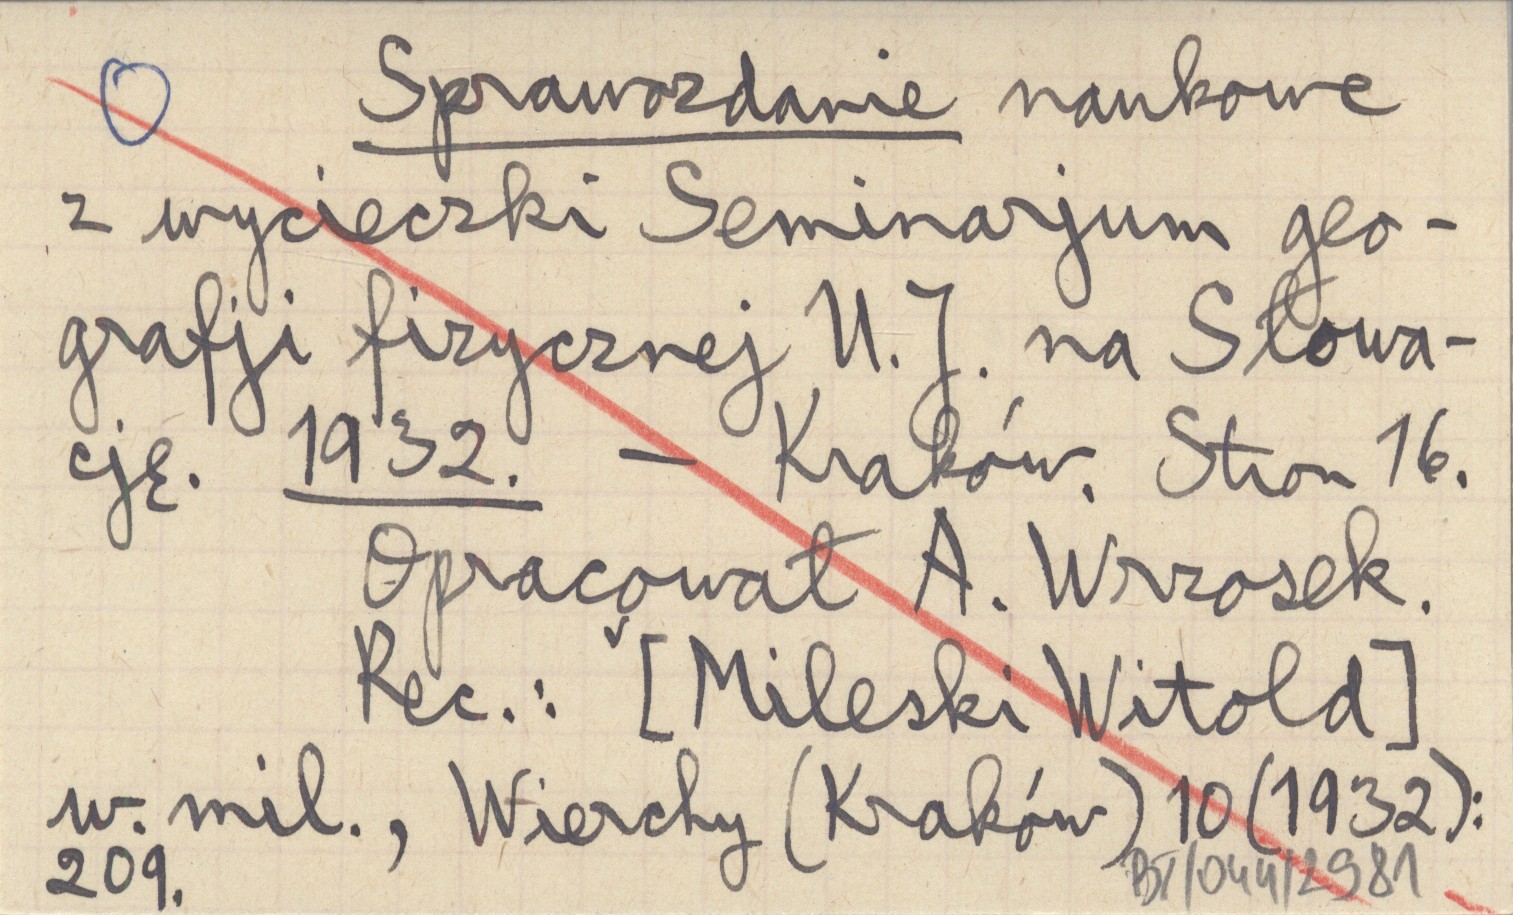 Sprawozdanie naukowe
z wycieczki Seminarjum geo-
grafji fizycznej U.J. na Słowa-
cję. 1932. — Kraków. Stron 16.
Opracował A. Wrzosek.
Rec.: [Mileski Witold]
w. mil., Wierchy (Kraków) 10 (1932):
209.
BT/044/2981